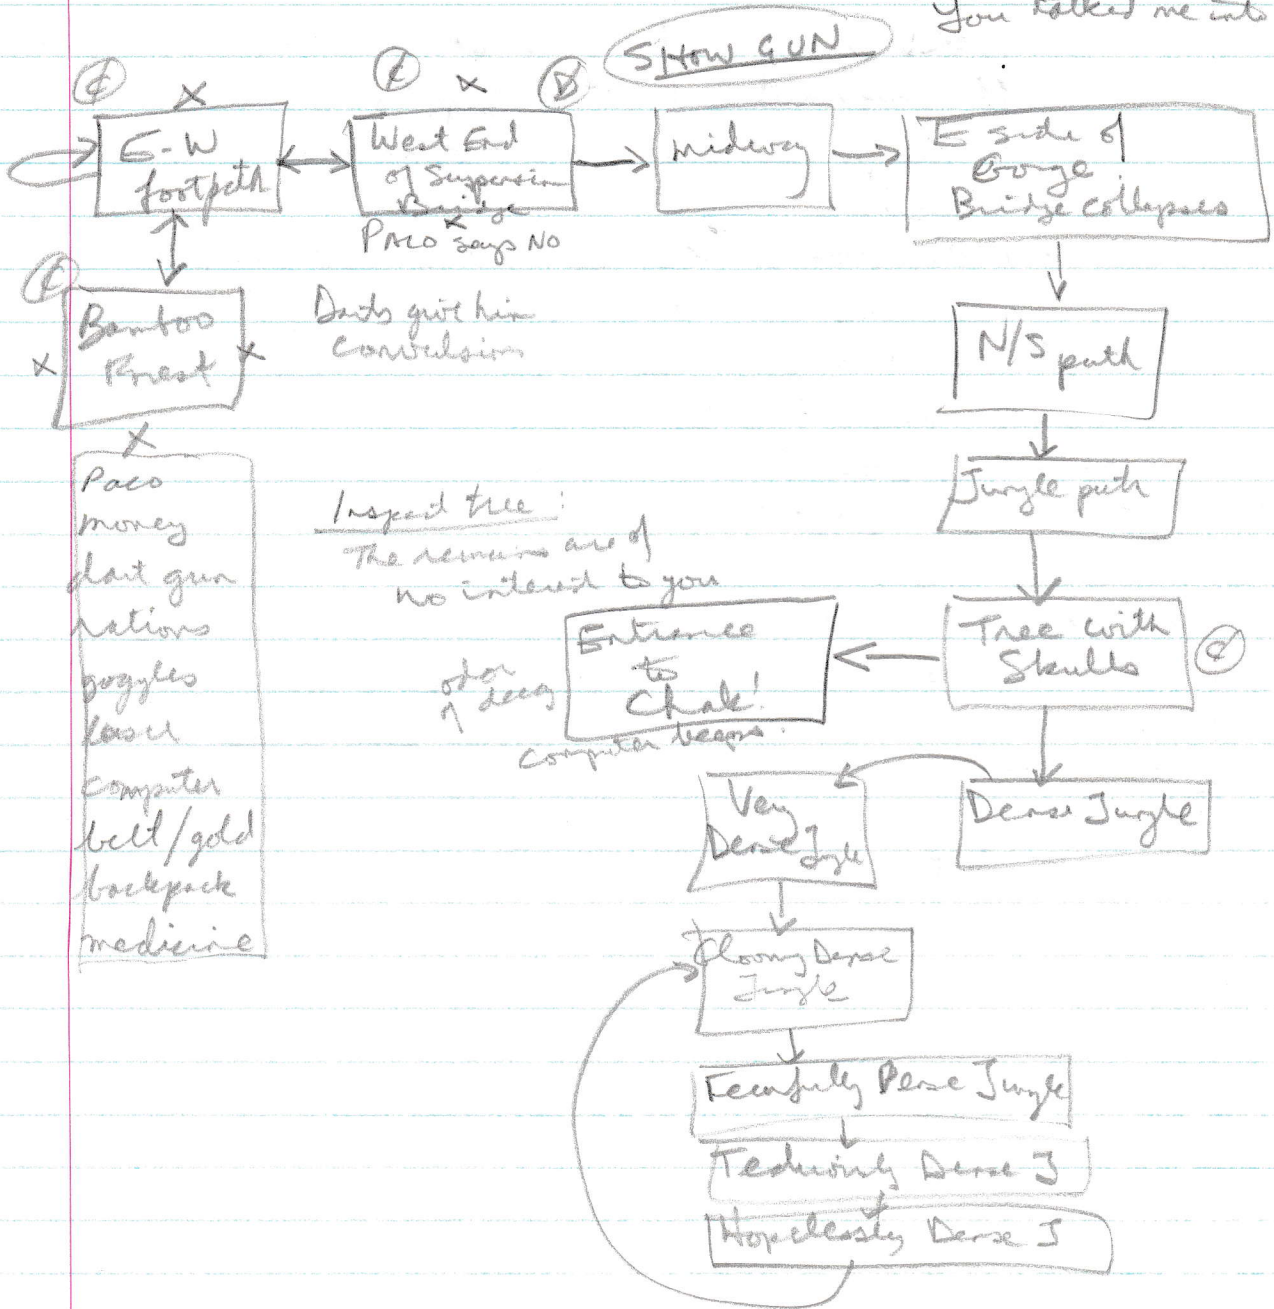 You talked me into
SHOW GUN
E-W
footpath
West End
of Suspension
Bridge
PACO says NO
midway
E side of
Gorge!
Bridge collapses
Bamboo
Forest
Darts give him
convulsions
N/S path
Jungle path
Paco
money
dart gun
rations
goggles
laser
computer
belt/gold
backpack
medicine
Inspect tree:
The remains are of
no interest to you
Entrance
to
Chak!
odor
of decay
computer beeps
Tree with
Skulls
Very
Dense Jungle
Dense Jungle
Gloomy Dense
Jungle
Fearfully Dense Jungle
Tediously Dense J
Hopelessly Dense J